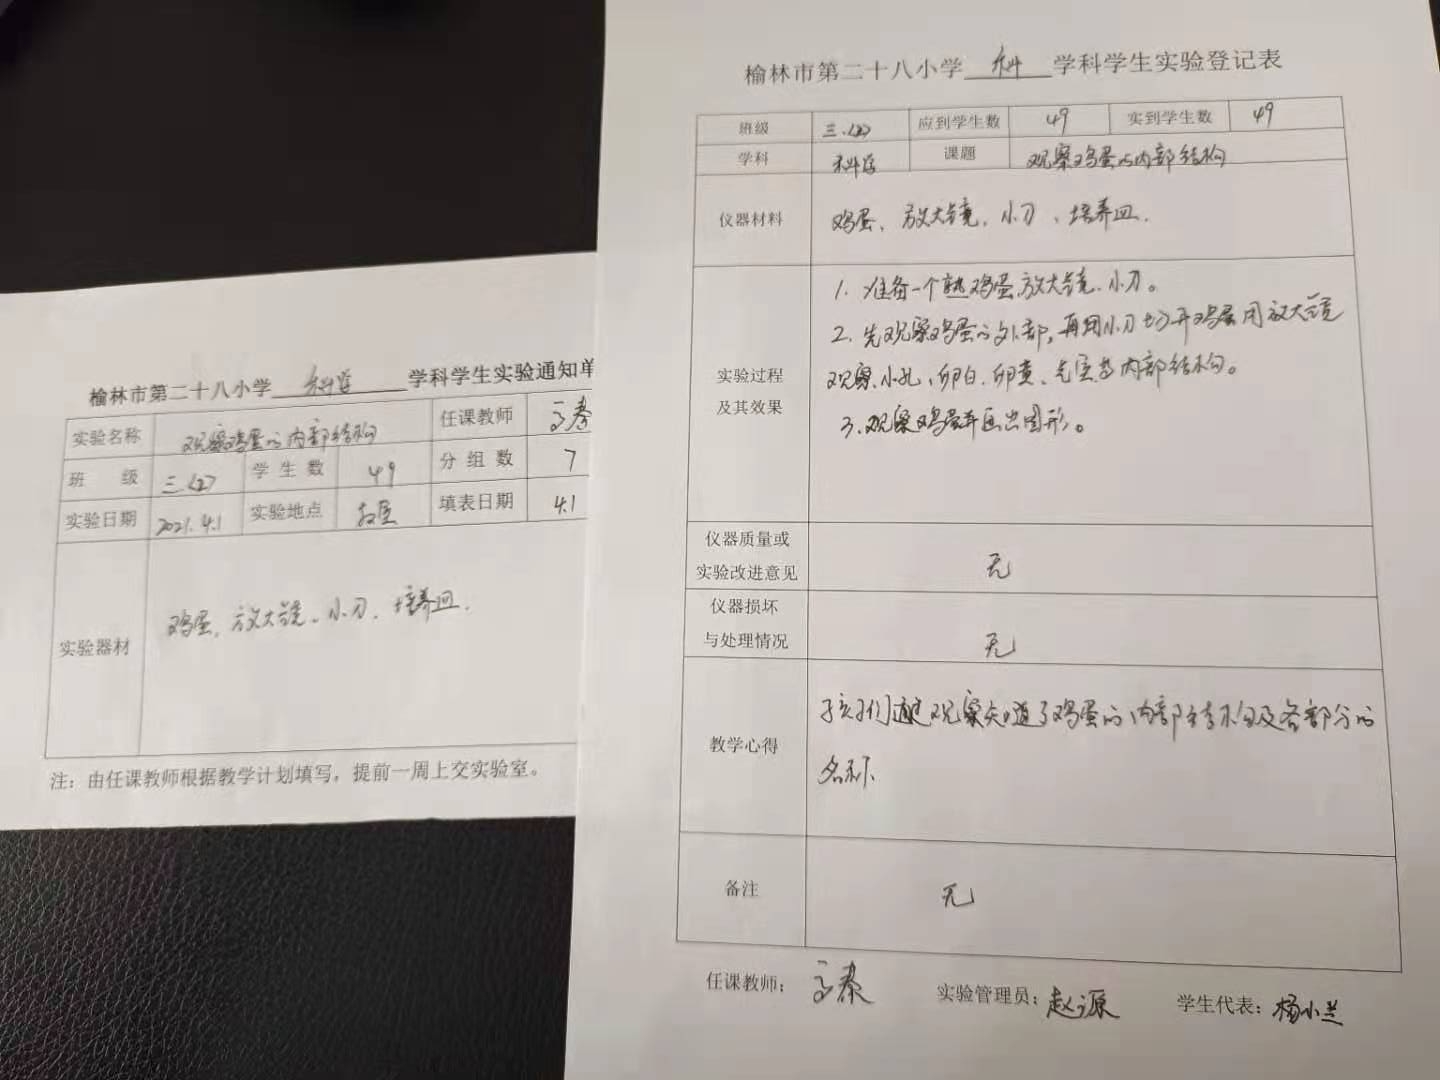 榆林市第二十八小学 科学 学科学生实验通知单
实验名称 观察鸡蛋的内部结构 任课教师 高泰
班 级 三.(2) 学 生 数 49 分 组 数 7
实验日期 2021.4.1 实验地点 教室 填表日期 4.1
实验器材 鸡蛋、放大镜、小刀、培养皿.
注：由任课教师根据教学计划填写，提前一周上交实验室。
榆林市第二十八小学 科 学科学生实验登记表
班级 三.(2) 应到学生数 49 实到学生数 49
学科 科学 课题 观察鸡蛋的内部结构
仪器材料 鸡蛋、放大镜、小刀、培养皿.
实验过程
及其效果
1. 准备一个熟鸡蛋放大镜、小刀。
2. 先观察鸡蛋的外部，再用小刀切开鸡蛋用放大镜
观察小孔、卵白、卵黄、气室等内部结构。
3. 观察鸡蛋并画出图形。
仪器质量或
实验改进意见
无
仪器损坏
与处理情况
无
教学心得
孩子们通过观察知道了鸡蛋的内部结构及各部分的
名称.
备注 无
任课教师： 高泰 实验管理员：赵源 学生代表：杨小兰